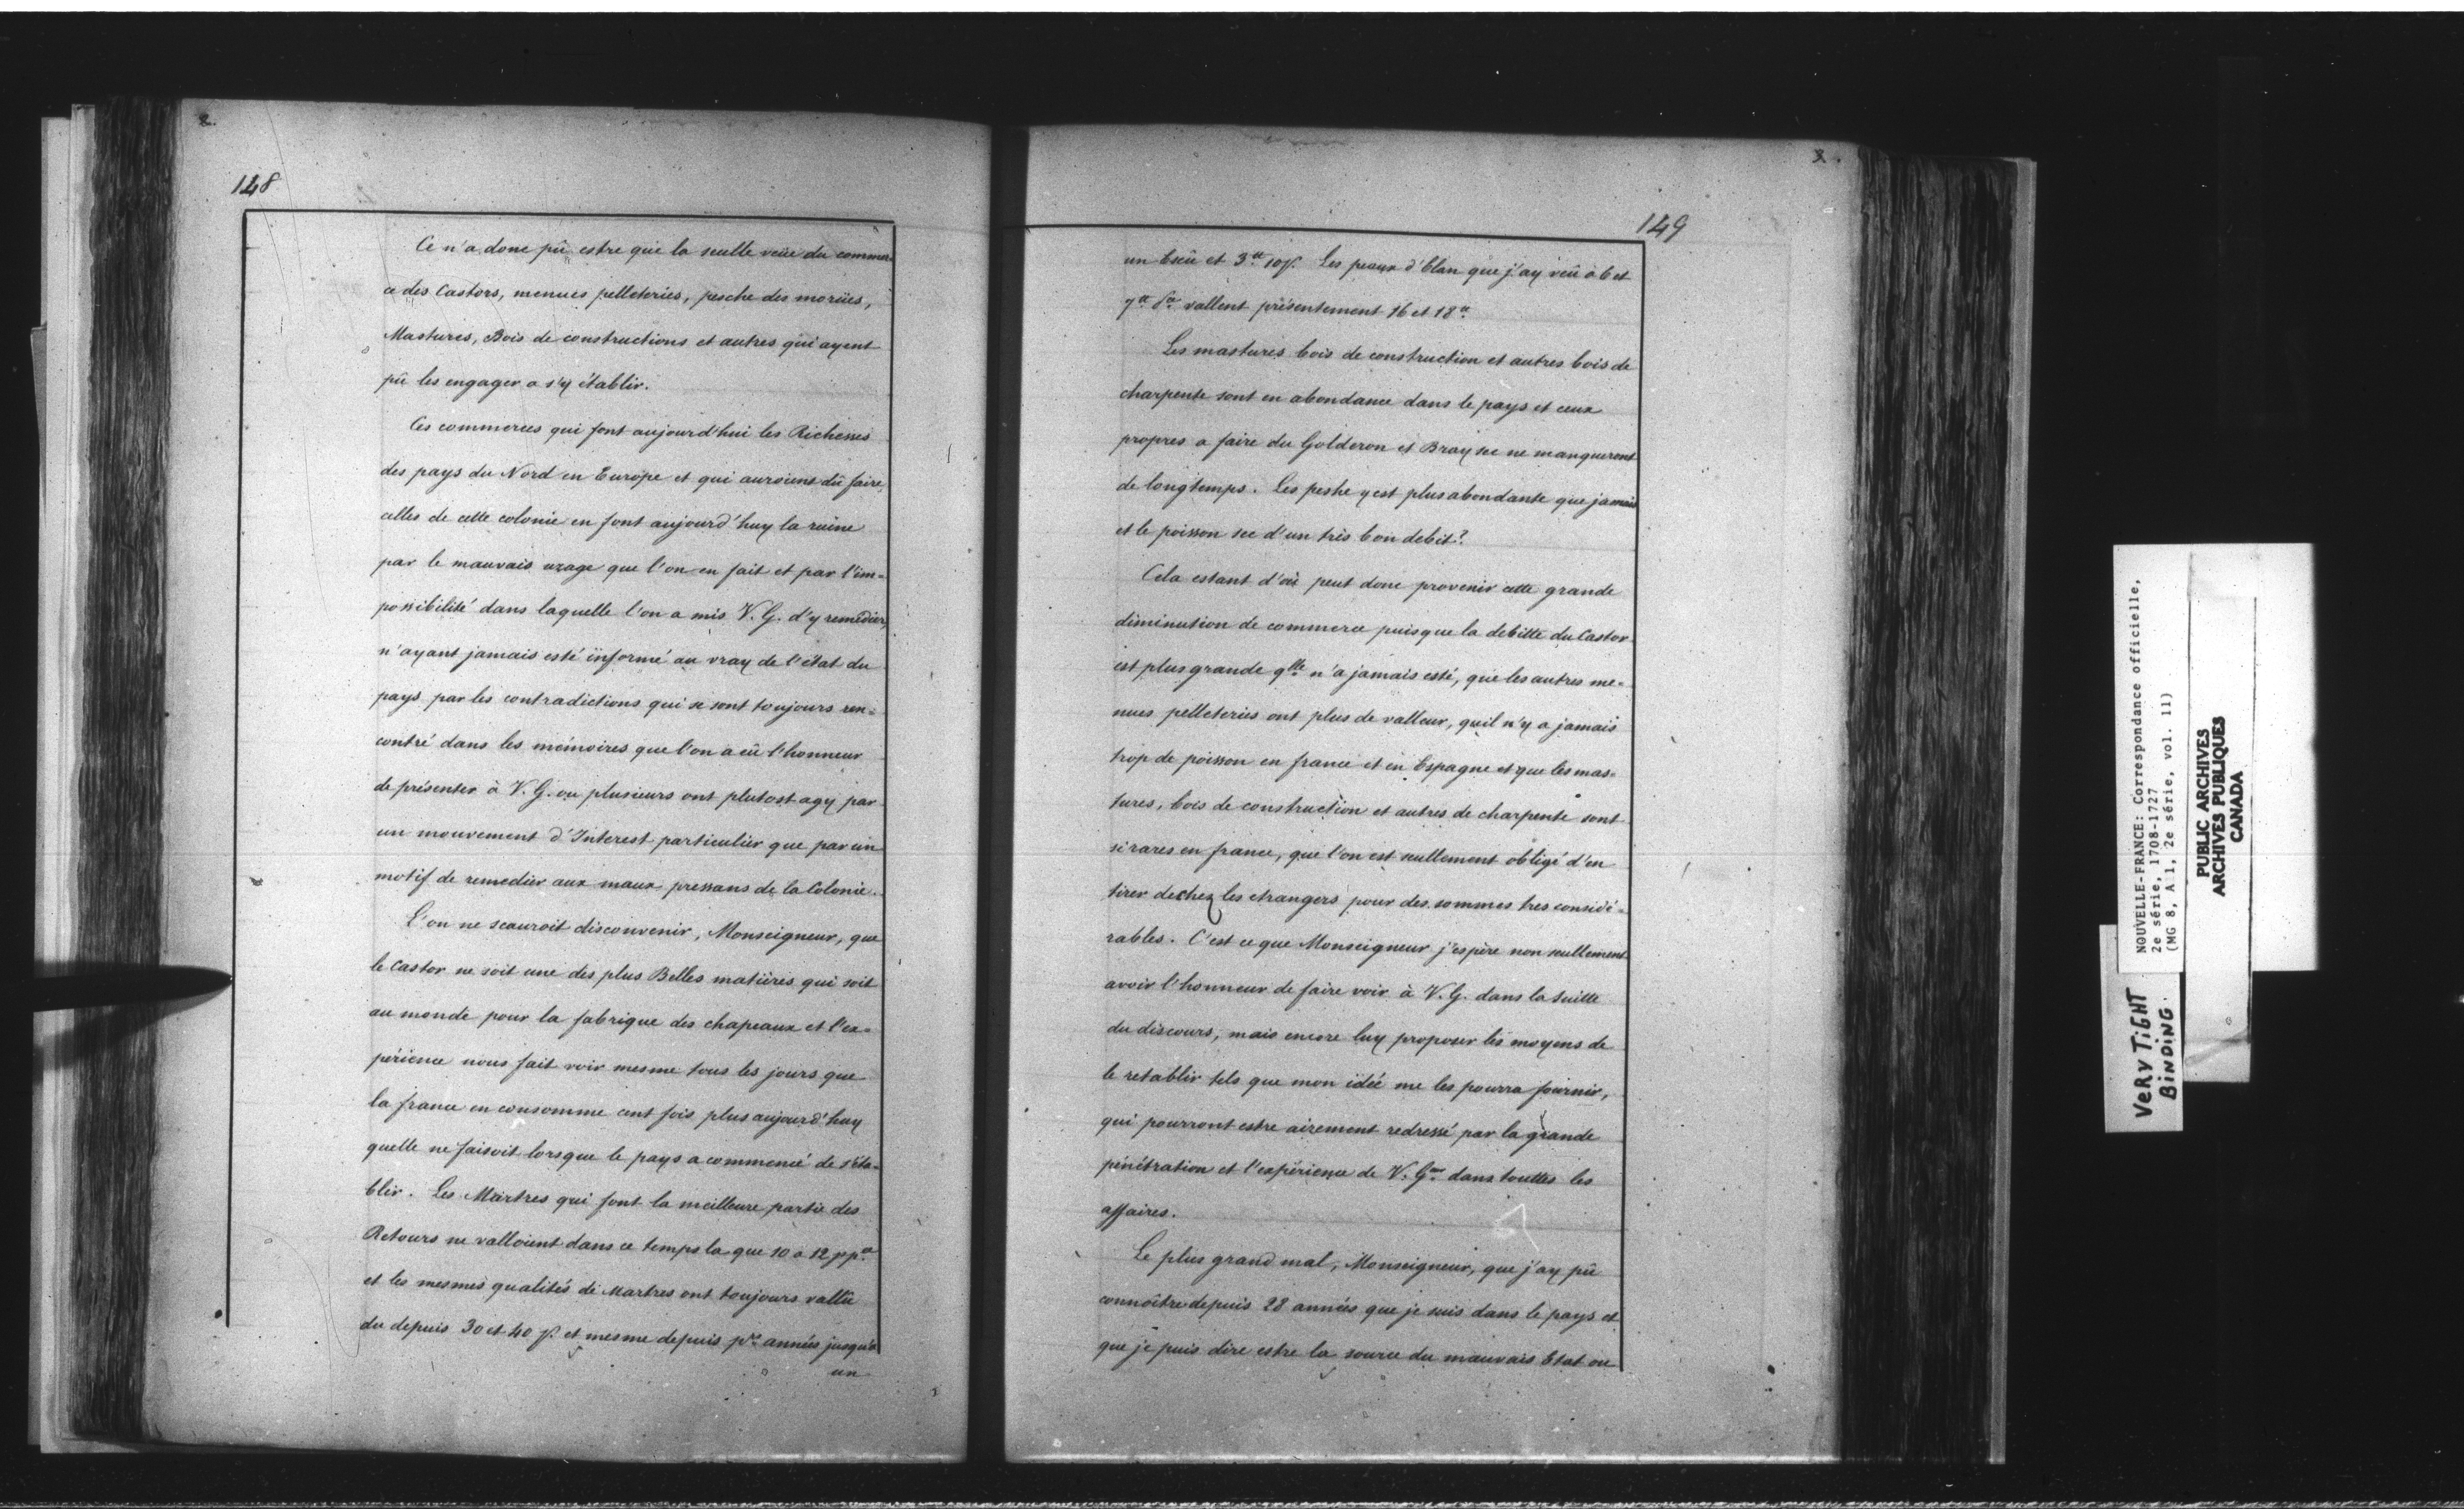 2.
148
Ce n'a donc pû estre que la seulle veüe du commer-
ce des Castors, menues pelleteries, pesche des morües,
Mastures, Bois de constructions et autres qui ayent
pû les engager a s'y établir.
Ces commerces qui font aujourd'hui les Richesses
des pays du Nord en Europe et qui auroient dû faire
celles de cette colonie en font aujourd'huy la ruine
par le mauvais uzage que l'on en fait et par l'im=
possibilité dans laquelle l'on a mis V. G. d'y remedier,
n'ayant jamais esté informé au vray de l'état du
pays par les contradictions qui se sont toujours ren=
contré dans les mémoires que l'on a eû l'honneur
de présenter à V. G. ou plusieurs ont plutost agy par
un mouvement d'Interest particulier que par un
motif de remedier aux maux pressans de la Colonie.
L'on ne scauroit disconvenir, Monseigneur, que
le Castor ne soit une des plus Belles matières qui soit
au monde pour la fabrique des chapeaux et l'ex=
périence nous fait voir mesme tous les jours que
la france en consomme cent fois plus aujourd'huy
quelle ne faisoit lorsque le pays a commencé de s'éta-
blir. Les Martres qui font la meilleure partie des
Retours ne valloient dans ce temps la que 10 a 12
et les mesmes qualités de Martres ont toujours vallû
du depuis 30 et 40 s. et mesme depuis années jusqu'à
un
149
un Escû et 3tt 10s. Les peaux d'Elan que j'ay veû à 6 et
7tt vallent présentement 16 et 18tt.
Les mastures bois de construction et autres bois de
charpente sont en abondance dans le pays et ceux
propres a faire du Golderon et Bray sec ne manqueront
de longtemps. Les peshe y est plus abondante que jamais
et le poisson sec d'un très bon debit?
Cela estant d'où peut donc provenir cette grande
diminution de commerce puisque la debitte du Castor
est plus grande qlle n'a jamais esté, que les autres me=
nues pelleteries ont plus de valleur, quil n'y a jamais
trop de poisson en france et en Espagne et que les mas=
tures, bois de construction et autres de charpente sont
si rares en france, que l'on est seullement obligé d'en
tirer de chez les etrangers pour des sommes tres considé=
rables. C'est ce que Monseigneur j'espère non seullement
avoir l'honneur de faire voir à V. G. dans la suitte
du discours, mais encore luy proposer les moyens de
le retablir tels que mon idée me les pourra fournir,
qui pourront estre aizement redressé par la grande
pénétration et l'expérience de V. Gr. dans touttes les
affaires.
Le plus grand mal, Monseigneur, que j'ay pû
connoître depuis 28 années que je suis dans le pays et
que je puis dire estre la source du mauvais Etat ou
NOUVELLE-FRANCE: Correspondance officielle,
2e série, 1708-1727
(MG 8, A 1, 2e série, vol. 11)
PUBLIC ARCHIVES
ARCHIVES PUBLIQUES
CANADA
VERY TIGHT
BINDING.